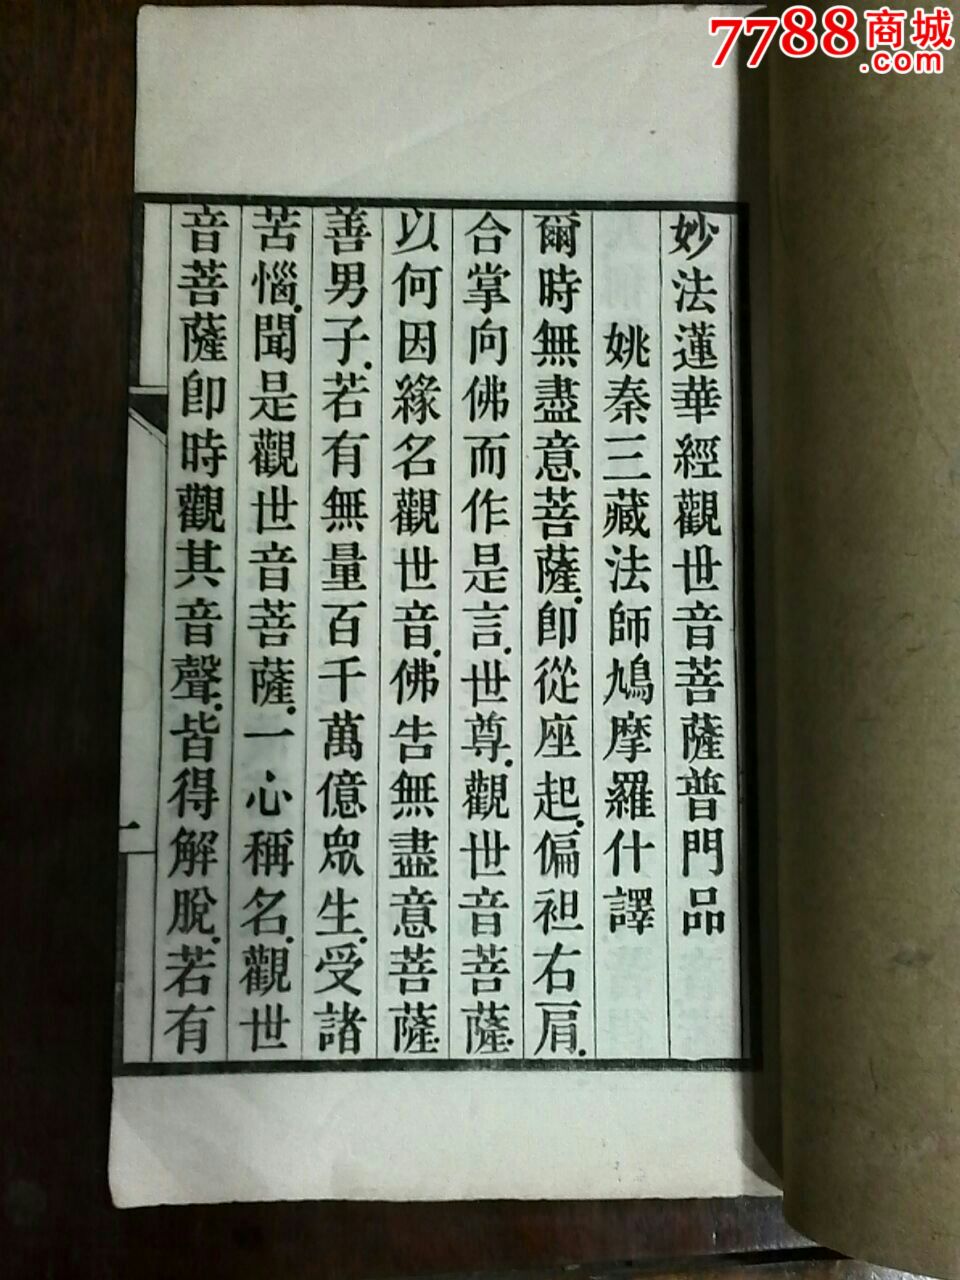 妙法蓮華經觀世音菩薩普門品
姚秦三藏法師鳩摩羅什譯
爾時無盡意菩薩.卽從座起.偏袒右肩.
合掌向佛而作是言.世尊.觀世音菩薩.
以何因緣名觀世音.佛告無盡意菩薩.
善男子.若有無量百千萬億眾生.受諸
苦惱.聞是觀世音菩薩.一心稱名.觀世
音菩薩卽時觀其音聲.皆得解脫.若有
一
7788商城
.com